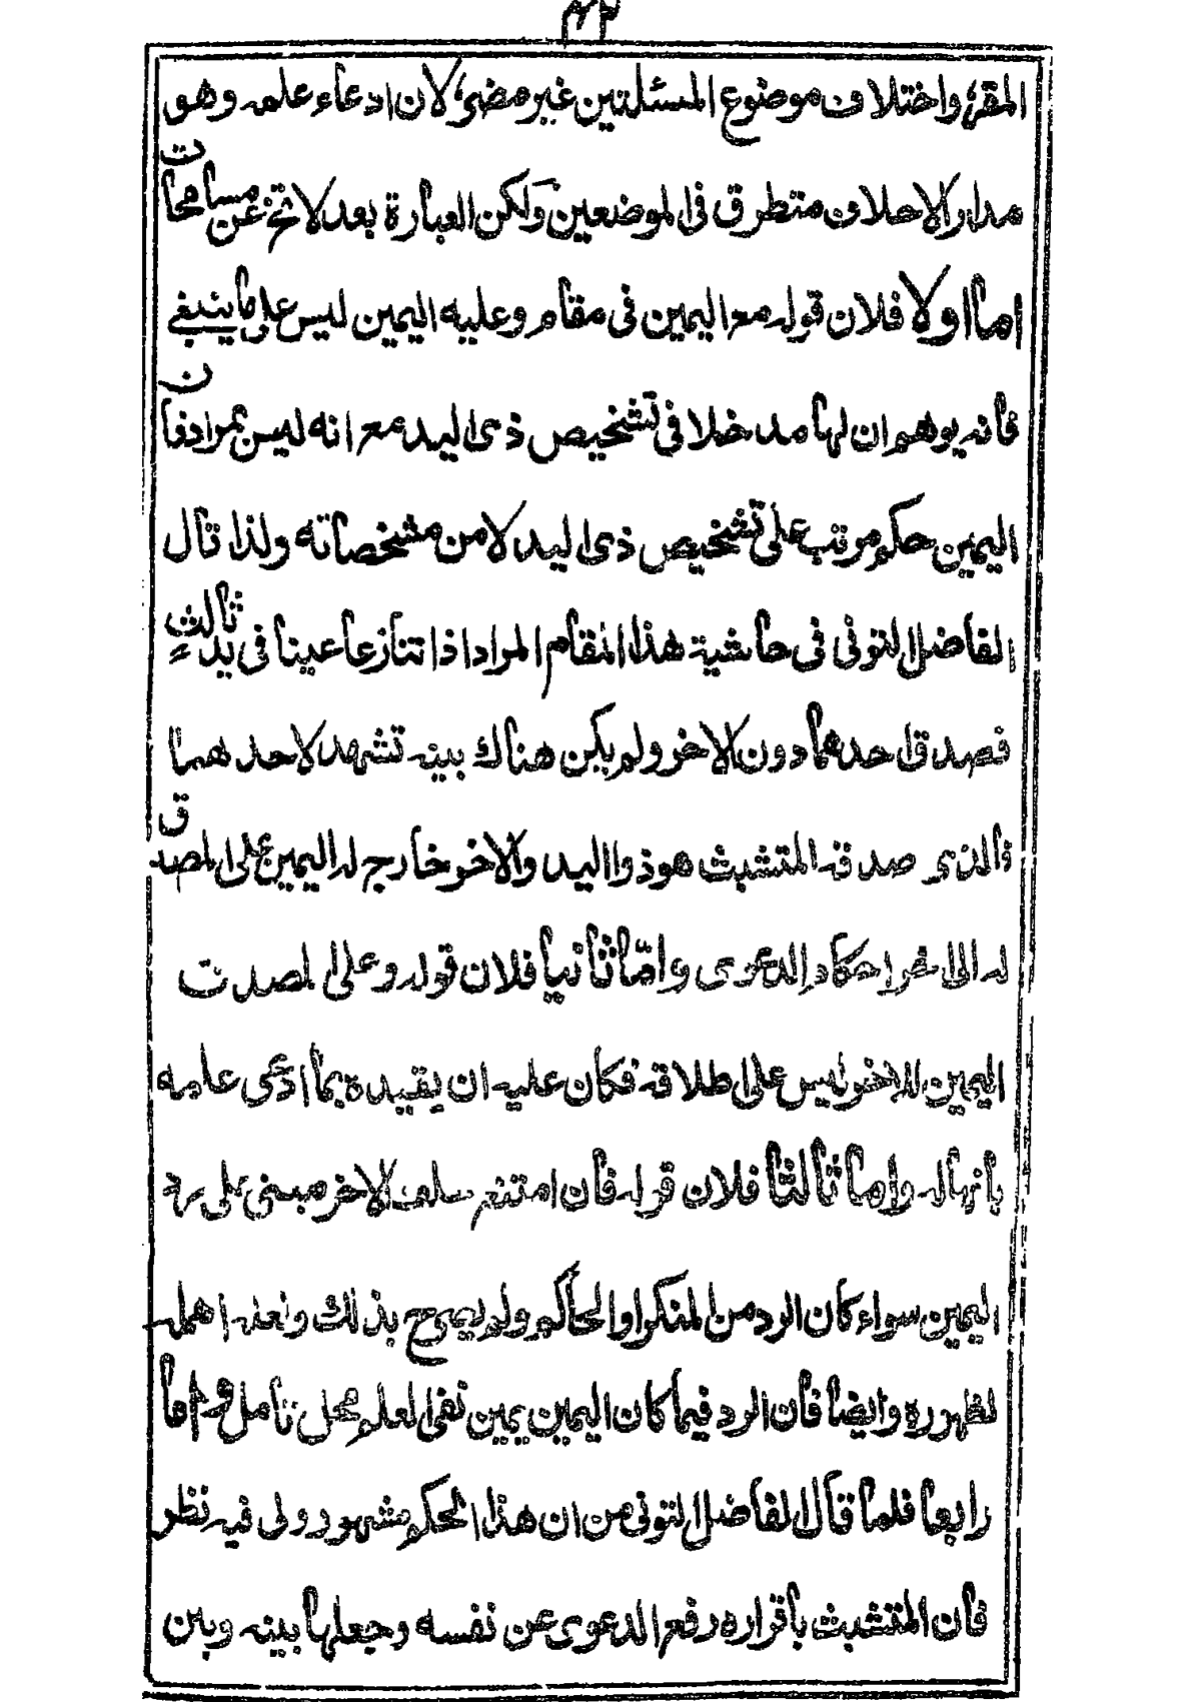 المقر، واختلاف موضوع المسئلتين غير مضر، لان ادعاء علمه وهو
مدار الاحلاف متطرق فى الموضعين ولكن العبارة بعد لا تخ عن مسامحات
اما اولا فلان قوله مع اليمين فى مقام وعليه اليمين ليس على ما ينبغى
فانه يوهم ان لها مدخلا فى تشخيص ذى اليد مع انه ليس بمراد فان
اليمين حكم مرتب على تشخيص ذى اليد لا من مشخصاته ولذا قال
الفاضل التونى فى حاشية هذا المقام المراد اذا تنازعا عينا فى يد ثالث
فصدق احدهما دون الاخر ولم يكن هناك بينه تشهد لاحدهما
فالذى صدقه المتشبث هو ذو اليد والاخر خارج له اليمين على المصدق
له الى اخر احكام الدعوى واما ثانيا فلان قوله وعلى المصدق
اليمين للاخر ليس على اطلاقه فكان عليه ان يقيده بما ادعى علمه
بانها له واما ثالثا فلان قوله فان امتنع حلف الاخر مبنى على رد
اليمين سواء كان الرد من المنكر او الحاكم ولم يصرح بذلك ولعله اهمله
لظهوره وايضا فان الرد فيما كان اليمين يمين نفى العلم محل تامل واما
رابعا فلما قال الفاضل التونى من ان هذا الحكم مشهور ولى فيه نظر
فان المتشبث باقراره دفع الدعوى عن نفسه وجعلها بينه وبين